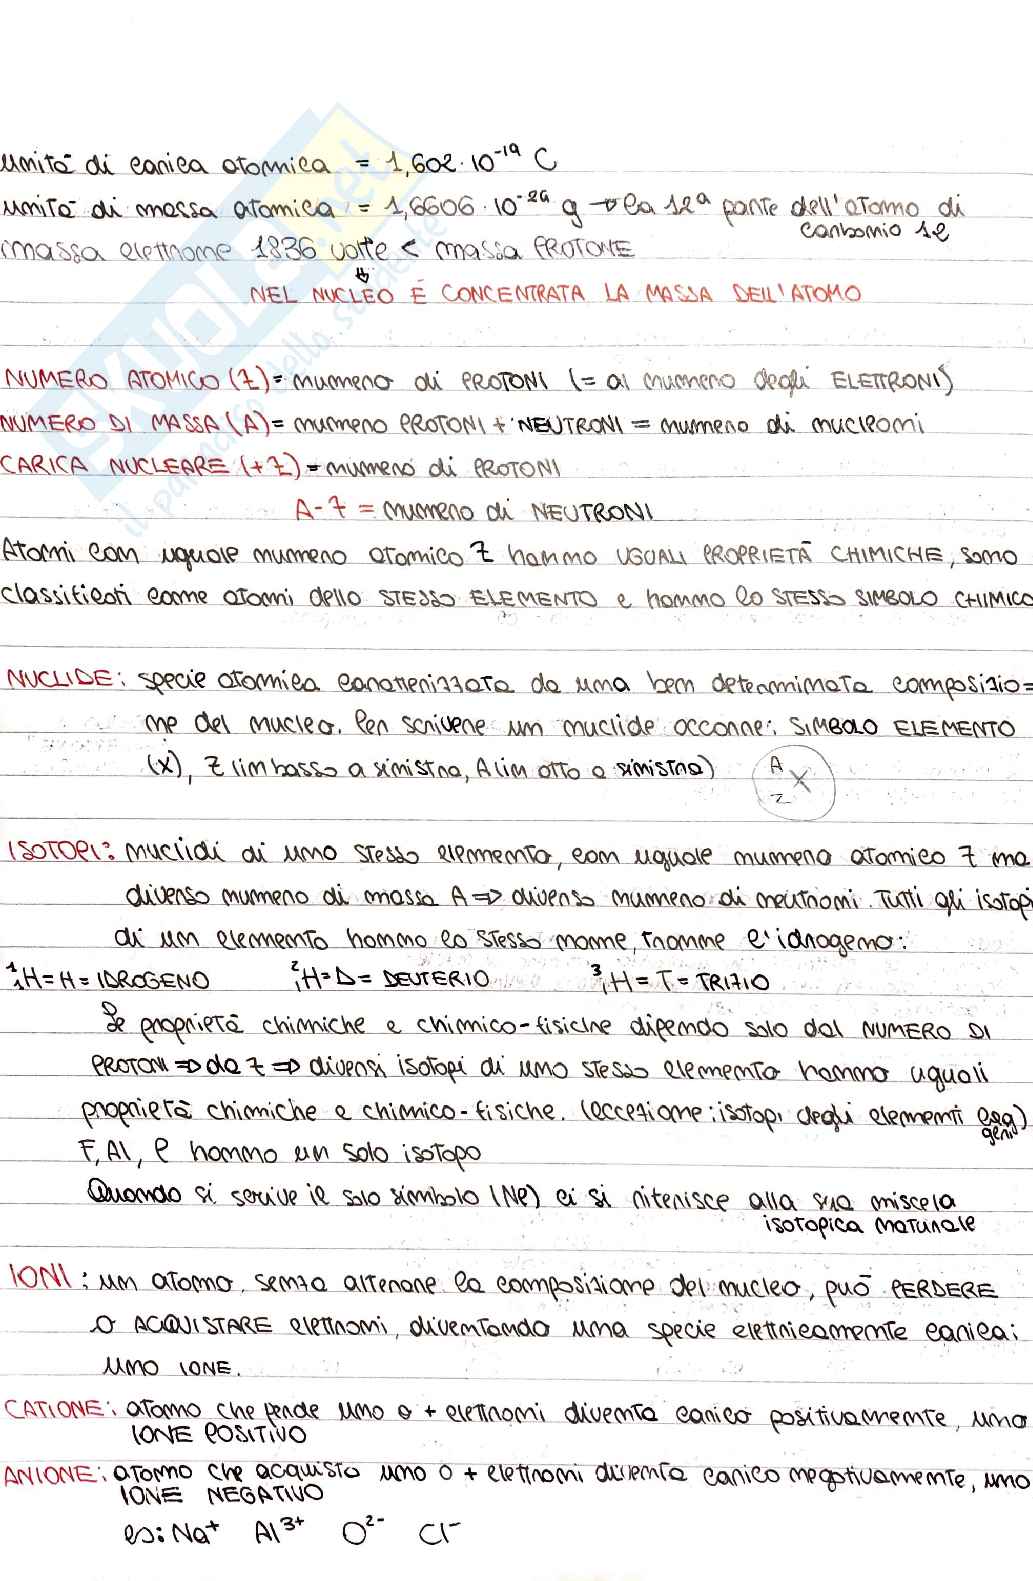 unità di carica atomica = 1,602·10⁻¹⁹ C
unità di massa atomica = 1,6606·10⁻²⁴ g → la 12ª parte dell'atomo di
carbonio 12
massa elettrone 1836 volte < massa PROTONE
NEL NUCLEO È CONCENTRATA LA MASSA DELL'ATOMO
NUMERO ATOMICO (Z) = numero di PROTONI (= al numero degli ELETTRONI)
NUMERO DI MASSA (A) = numero PROTONI + NEUTRONI = numero di nucleoni
CARICA NUCLEARE (+Z) = numero di PROTONI
A-Z = numero di NEUTRONI
Atomi con uguale numero atomico Z hanno UGUALI PROPRIETÀ CHIMICHE, sono
classificati come atomi dello STESSO ELEMENTO e hanno lo STESSO SIMBOLO CHIMICO
NUCLIDE: specie atomica caratterizzata da una ben determinata composizio=
ne del nucleo. Per scrivere un nuclide occorre: SIMBOLO ELEMENTO
(X), Z (in basso a sinistra, A (in atto a sinistra)
A
X
Z
ISOTOPI: nuclidi di uno stesso elemento, con uguale numero atomico Z ma
diverso numero di massa A ⇒ diverso numero di neutroni. Tutti gli isotopi
di un elemento hanno lo stesso nome, tranne l'idrogeno:
¹₁H = H = IDROGENO ²₁H = D = DEUTERIO ³₁H = T = TRIZIO
Le proprietà chimiche e chimico-fisiche dipendo solo dal NUMERO DI
PROTONI ⇒ da Z ⇒ diversi isotopi di uno stesso elemento hanno uguali
proprietà chimiche e chimico-fisiche. (eccezione: isotopi degli elementi leg)
geri
F, Al, P hanno un solo isotopo
Quando si scrive il solo simbolo (Ne) ci si riferisce alla sua miscela
isotopica naturale
IONI: un atomo, senza alterare la composizione del nucleo, può PERDERE
O ACQUISTARE elettroni, diventando una specie elettricamente carica:
uno IONE.
CATIONE: atomo che perde uno o + elettroni diventa carico positivamente, uno
IONE POSITIVO
ANIONE: atomo che acquista uno o + elettroni diventa carico negativamente, uno
IONE NEGATIVO
es: Na⁺ Al³⁺ O²⁻ Cl⁻
SKUOLA.net
il paradiso dello studente